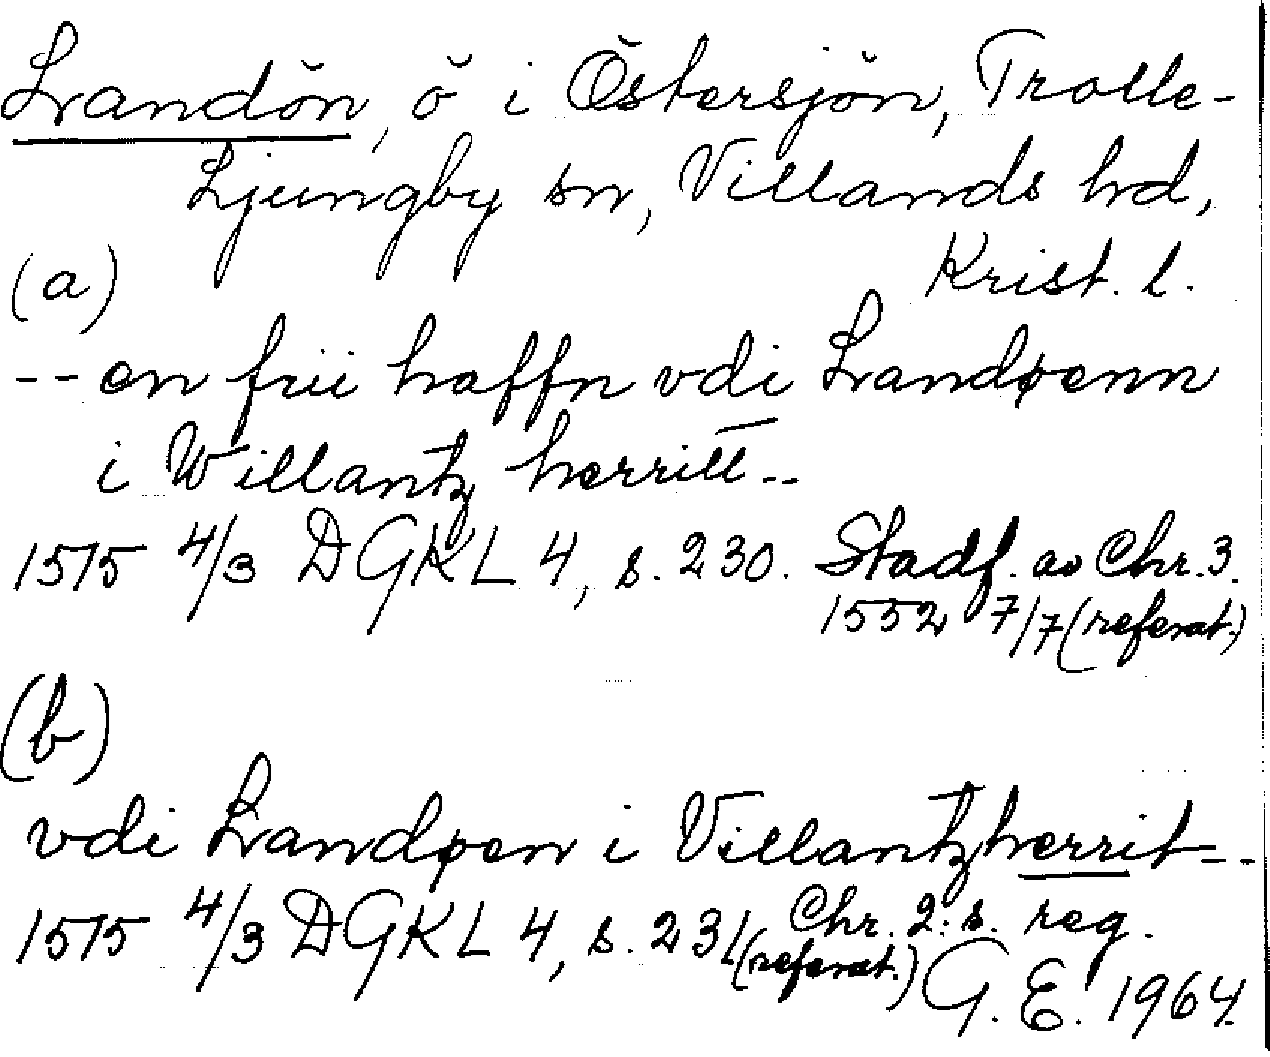 Landön, ö i Östersjön, Trolle-
Ljungby sn, Villands hd,
Krist. l.
(a)
-- en frii haffn vdi Landøenn
i Willantz herritt --
1575 4/3 DGKL 4, s. 230. Stadf. av Chr. 3.
1552 7/7 (referat.)
(b)
vdi Landøen i Villantzherrit --
1575 4/3 DGKL 4, s. 231 Chr. 2:s reg.
(referat.) G. E. 1964.